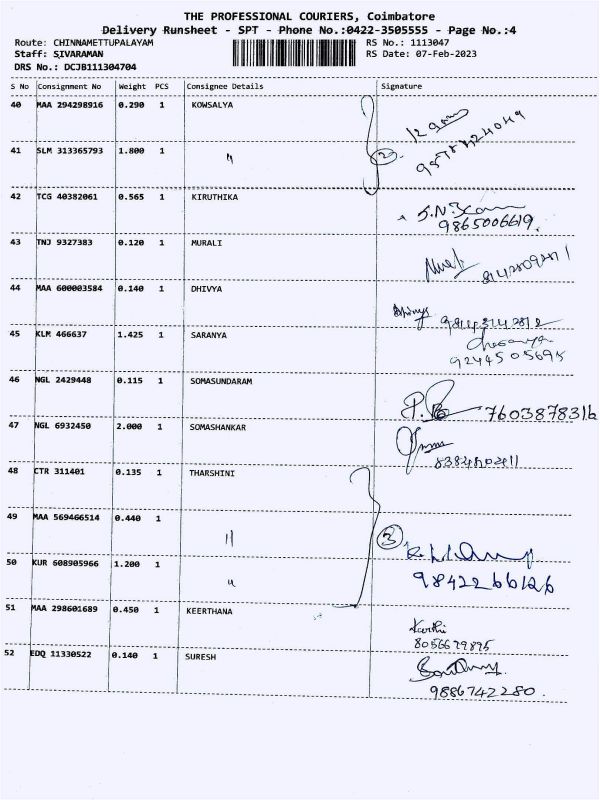 THE PROFESSIONAL COURIERS, Coimbatore
Delivery Runsheet - SPT - Phone No.:0422-3505555 - Page No.:4
Route: CHINNAMETTUPALAYAM RS No.: 1113047
Staff: SIVARAMAN RS Date: 07-Feb-2023
DRS No.: DCJB111304704
S No Consignment No Weight PCS Consignee Details Signature
40 MAA 294298916 0.290 1 KOWSALYA
41 SLM 313365793 1.800 1 〃 2
42 TCG 40382061 0.565 1 KIRUTHIKA
9865006619.
43 TNJ 9327383 0.120 1 MURALI
44 MAA 600003584 0.140 1 DHIVYA
45 KLM 466637 1.425 1 SARANYA
9244505695
46 NGL 2429448 0.115 1 SOMASUNDARAM
7603878316
47 NGL 6932450 2.000 1 SOMASHANKAR
48 CTR 311401 0.135 1 THARSHINI
49 MAA 569466514 0.440 1 〃 3
50 KUR 608905966 1.200 1 〃
9842266126
51 MAA 298601689 0.450 1 KEERTHANA
Karthi
8056679875
52 EDQ 11330522 0.140 1 SURESH
9886742280.